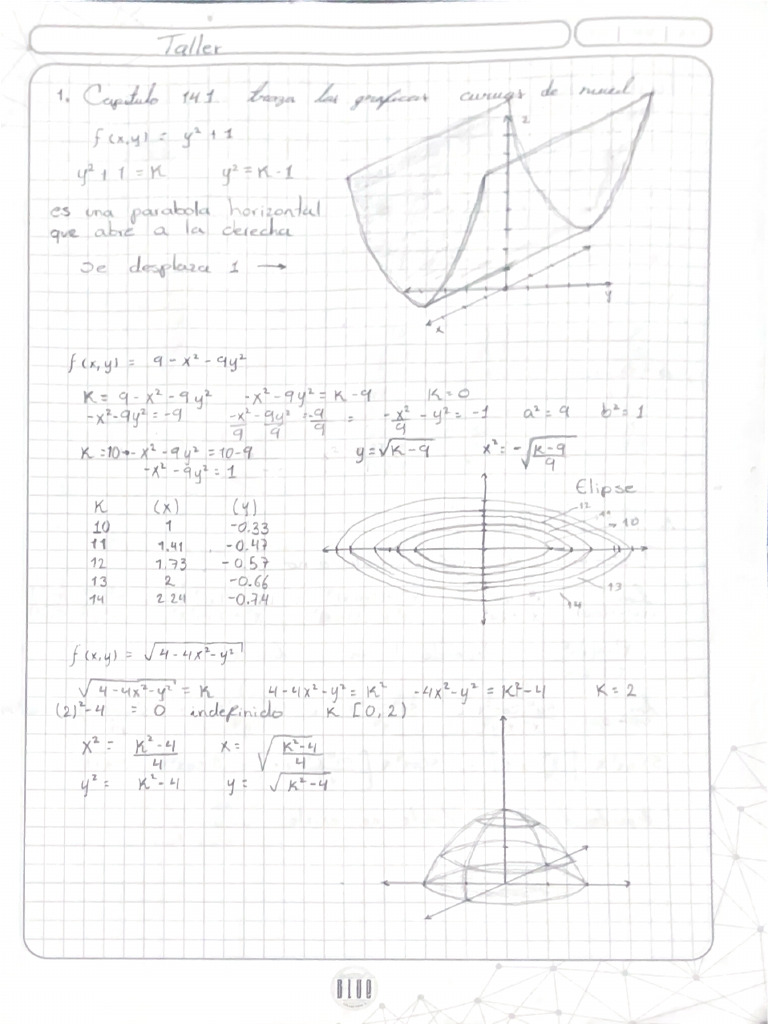 Taller
1. Capitulo 14.1 traza las graficas curvas de nivel
f(x,y) = y² + 1
y² + 1 = K y² = K - 1
es una parabola horizontal
que abre a la derecha
Se desplaza 1 →
z
y
x
f(x,y) = 9 - x² - 9y²
K = 9 - x² - 9y² -x² - 9y² = K - 9 K = 0
-x² - 9y² = -9 -x²/9 - 9y²/9 = -9/9 = -x²/9 - y² = -1 a² = 9 b² = 1
K = 10 → -x² - 9y² = 10 - 9 y = √(K - 9) x² = -√((K - 9)/9)
-x² - 9y² = 1
Elipse
K (x) (y)
10 1 -0.33
11 1.41 -0.47
12 1.73 -0.57
13 2 -0.66
14 2.24 -0.74
12
10
13
14
f(x,y) = √(4 - 4x² - y²)
√(4 - 4x² - y²) = K 4 - 4x² - y² = K² -4x² - y² = K² - 4 K = 2
(2)² - 4 = 0 indefinido K [0, 2)
x² = (K² - 4)/4 x = √((K² - 4)/4)
y² = K² - 4 y = √(K² - 4)
BLUE